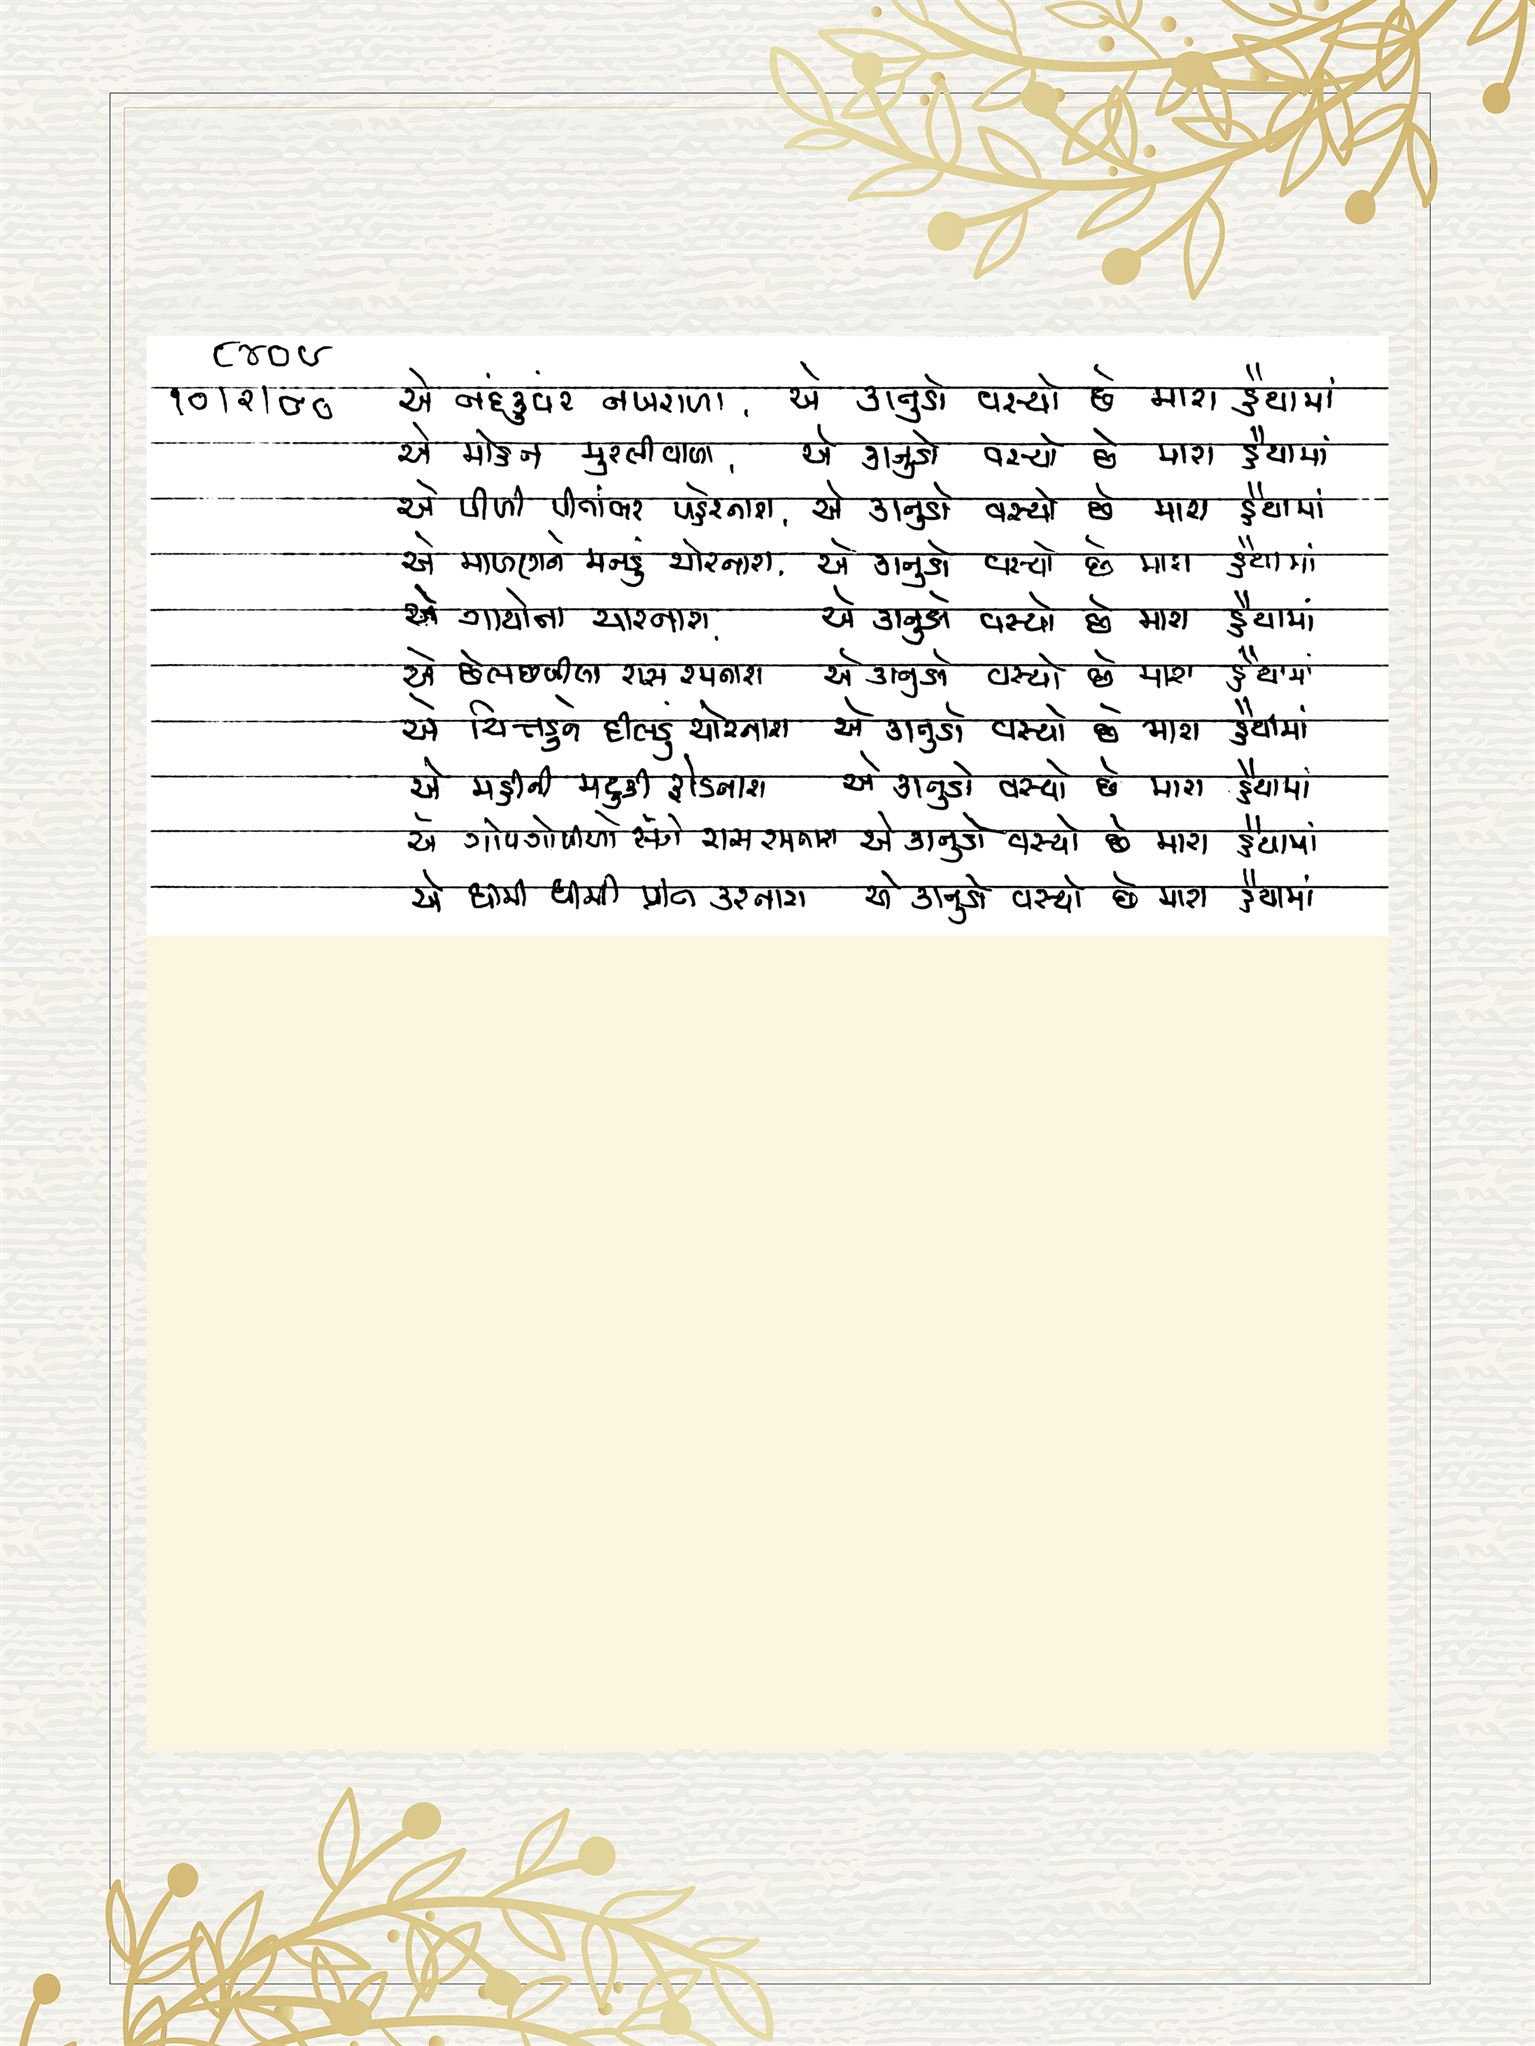 ૮૪૦૯
૧૦/૨/૦૦ એ નંદકુવંર નખરાળા, એ કાનુડો વસ્યો છે મારા હૈયામાં
એ મોહન મુરલીવાળા, એ કાનુડો વસ્યો છે મારા હૈયામાં
એ પીળી પીતાંબર પહેરનારા, એ કાનુડો વસ્યો છે મારા હૈયામાં
એ માખણને મનડું ચોરનારા, એ કાનુડો વસ્યો છે મારા હૈયામાં
એ ગાયોના ચારનારા, એ કાનુડો વસ્યો છે મારા હૈયામાં
એ છેલછબીલા રાસ રમનારા એ કાનુડો વસ્યો છે મારા હૈયામાં
એ ચિત્તડુંને દીલડું ચોરનારા એ કાનુડો વસ્યો છે મારા હૈયામાં
એ મહીની મટુકી ફોડનારા એ કાનુડો વસ્યો છે મારા હૈયામાં
એ ગોપગોપીઓ સંગે રાસ રમનારા એ કાનુડો વસ્યો છે મારા હૈયામાં
એ ધીમી ધીમી પ્રીત કરનારા એ કાનુડો વસ્યો છે મારા હૈયામાં